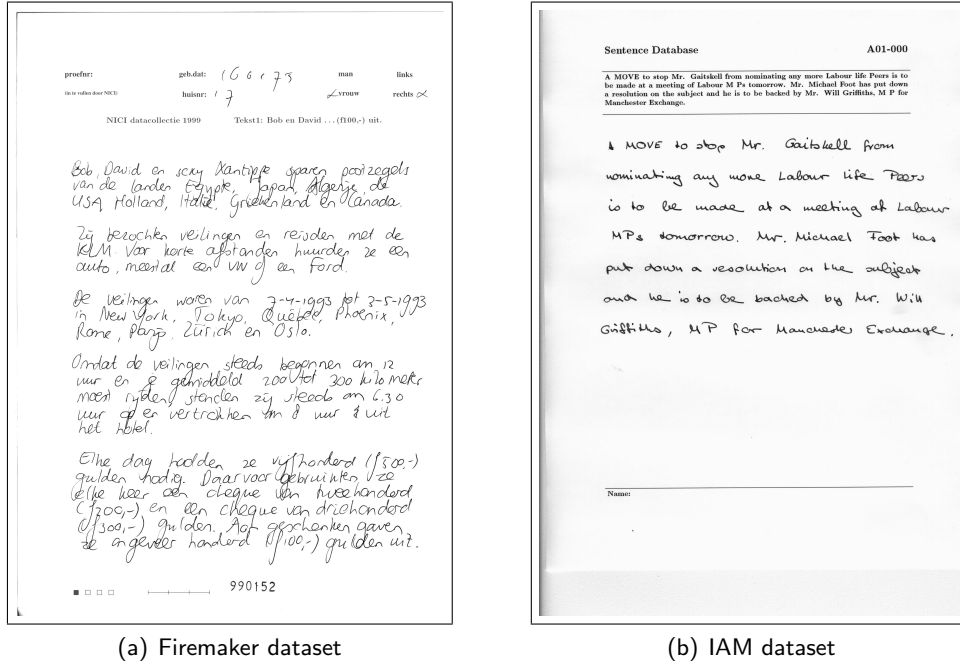 proefnr: geb.dat: 16 01 73 man links
(in te vullen door NICI) huisnr: 17 vrouw rechts
NICI datacollectie 1999 Tekst1: Bob en David ... (f100,-) uit.
Bob, David en sexy Xantippe sparen postzegels
van de landen Egypte, Japan, Algerije, de
USA, Holland, Italië, Griekenland en Canada.
Zij bezochten veilingen en reisden met de
KLM. Voor korte afstanden huurden ze een
auto, meestal een VW of een Ford.
De veilingen waren van 7-4-1993 tot 3-5-1993
in New York, Tokyo, Québec, Phoenix,
Rome, Parijs, Zürich en Oslo.
Omdat de veilingen steeds begonnen om 12
uur en je gemiddeld 200 tot 300 kilometer
moest rijden, stonden zij steeds om 6.30
uur op en vertrokken om 8 uur uit
het hotel.
Elke dag hadden ze vijfhonderd (f500,-)
gulden nodig. Daarvoor gebruikten ze
elke keer een cheque van tweehonderd
(f200,-) en een cheque van driehonderd
(f300,-) gulden. Aan geschenken gaven
ze ongeveer honderd (f100,-) gulden uit.
990152
(a) Firemaker dataset
Sentence Database A01-000
A MOVE to stop Mr. Gaitskell from nominating any more Labour life Peers is to
be made at a meeting of Labour M Ps tomorrow. Mr. Michael Foot has put down
a resolution on the subject and he is to be backed by Mr. Will Griffiths, M P for
Manchester Exchange.
A MOVE to stop Mr. Gaitskell from
nominating any more Labour life Peers
is to be made at a meeting of Labour
MPs tomorrow. Mr. Michael Foot has
put down a resolution on the subject
and he is to be backed by Mr. Will
Griffiths, MP for Manchester Exchange.
Name:
(b) IAM dataset